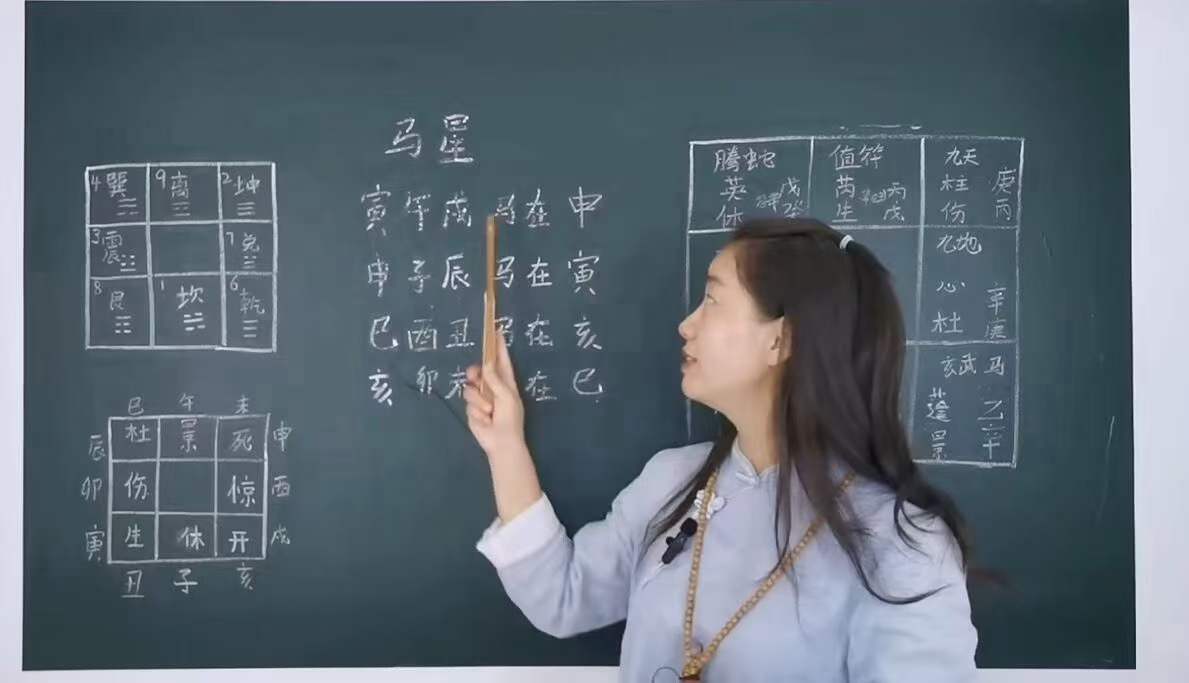 马星
寅午戌马在申
申子辰马在寅
巳酉丑马在亥
亥卯未 在巳
4巽 9离 2坤
3震 7兑
8艮 1坎 6乾
巳 午 未
辰 杜 景 死 申
卯 伤 惊 酉
寅 生 休 开 戌
丑 子 亥
腾蛇 值符 九天
英 戊 芮 丙 柱 庚
休 癸 生 戊 伤 丙
九地
心 辛
杜 庚
玄武 马
蓬 乙
景 辛